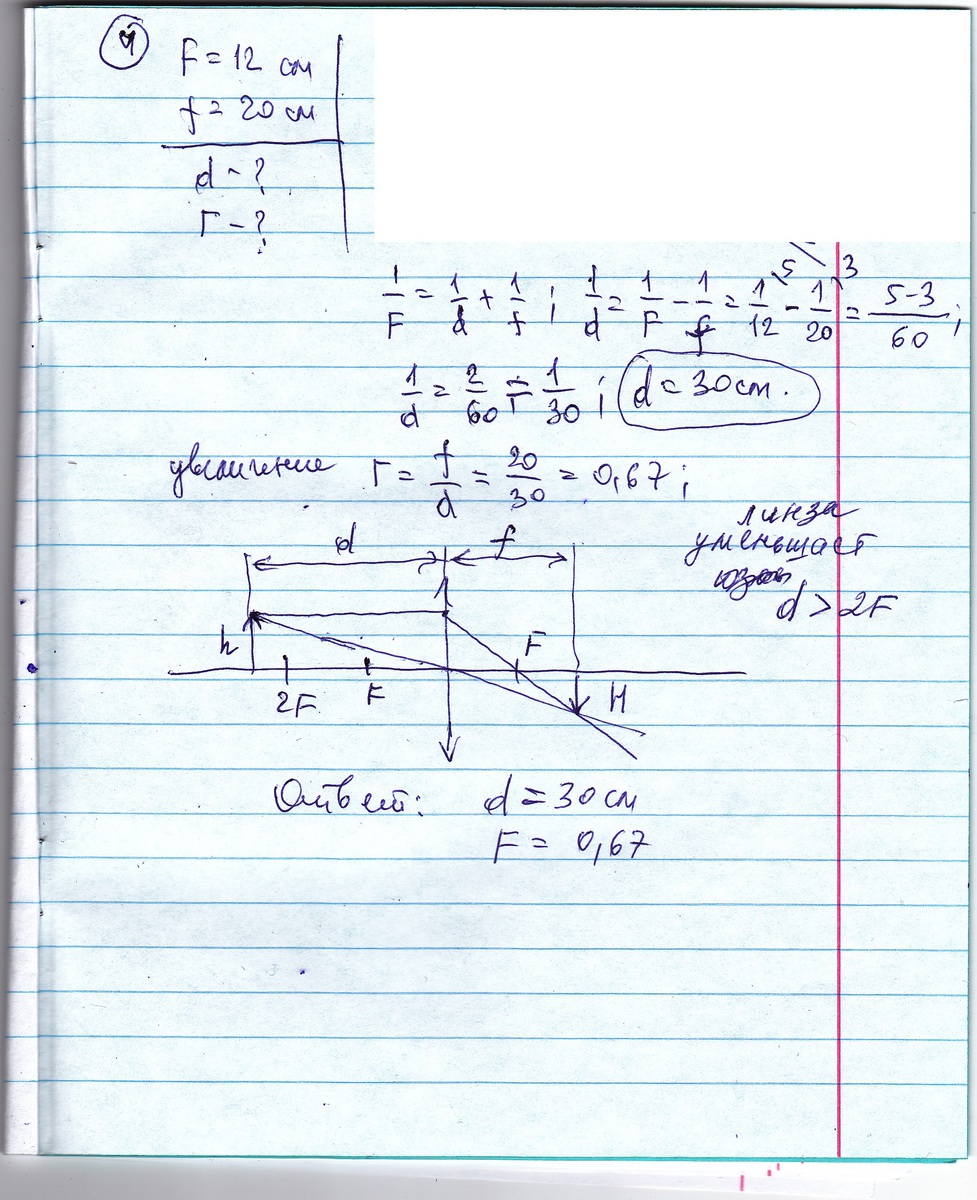 4
F = 12 см
f = 20 см
d - ?
Г - ?
1/F = 1/d + 1/f ; 1/d = 1/F - 1/f = 1/12 \5 - 1/20 \3 = 5-3/60 ;
1/d = 2/60 = 1/30 ; d = 30 см.
увеличение Г = f/d = 20/30 = 0,67 ;
линза
уменьшает
d > 2F
d f
h 2F F F H
Ответ: d = 30 см
F = 0,67